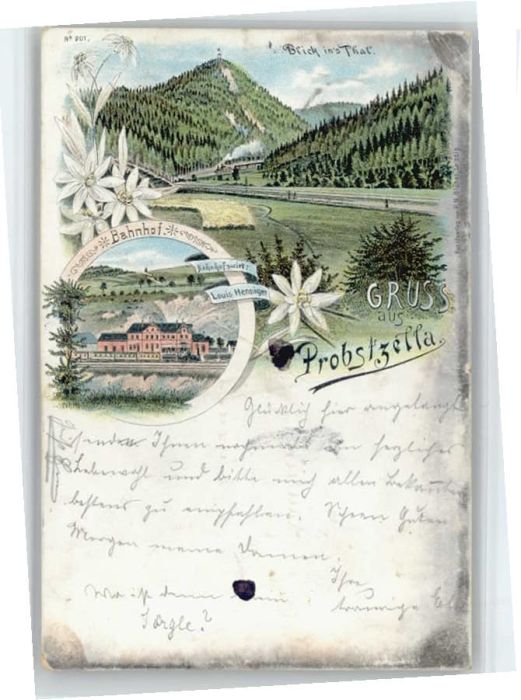 No 201.
Blick in's Thal.
Bahnhof.
Bahnhofswirt:
Louis Hensinger
GRUSS
aus
Probstzella
Glücklich hier angelangt
sende Ihnen nochmals ein herzliches
Lebewohl und bitte mich allen Bekannten
bestens zu empfehlen. Schönen Guten
Morgen meine Damen.
Ihre
Wo ist denn
traurige